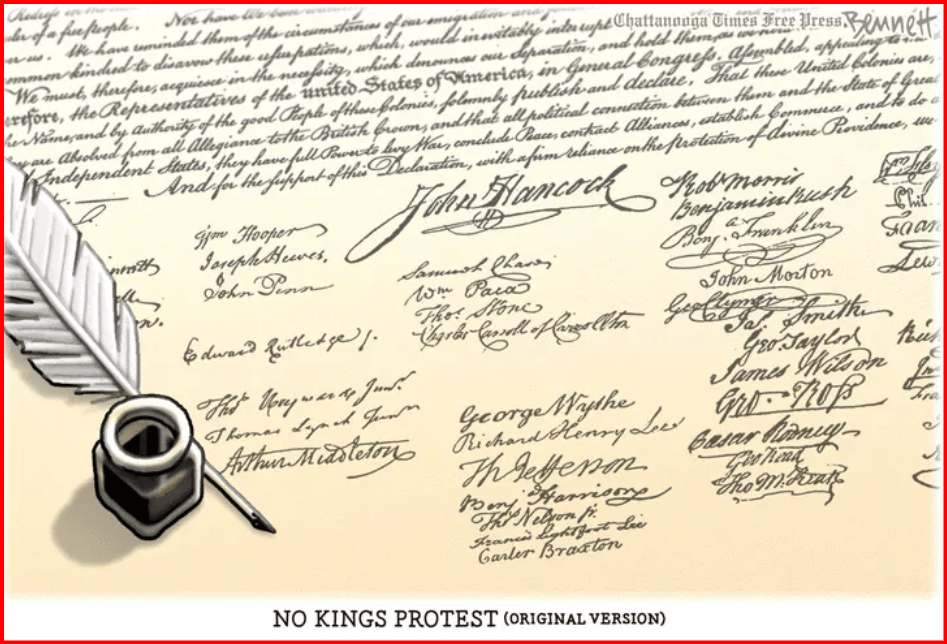 Chattanooga Times Free Press Bennett
Nor have We been
of a free people.
We have reminded them of the circumstances of our emigration and
common kindred to disavow these usurpations, which, would inevitably interrupt
We must, therefore, acquiesce in the necessity, which denounces our Separation, and hold them, as we
the Representatives of the united States of America, in General Congress, Assembled, appealing to
the Name, and by Authority of the good People of these Colonies, solemnly publish and declare, That these United Colonies are,
are Absolved from all Allegiance to the British Crown, and that all political connection between them and the State of Great
Independent States, they have full Power to levy War, conclude Peace, contract Alliances, establish Commerce, and to do
And for the support of this Declaration, with a firm reliance on the protection of divine Providence, we
John Hancock
Wm Hooper
Joseph Hewes,
John Penn
Edward Rutledge
Thos Heyward Junr
Thomas Lynch Junr
Arthur Middleton
Samuel Chase
Wm Paca
Thos Stone
Charles Carroll of Carrollton
George Wythe
Richard Henry Lee
Th Jefferson
Benj Harrison
Thos Nelson jr.
Francis Lightfoot Lee
Carter Braxton
Robt Morris
Benjamin Rush
Benj. Franklin
John Morton
Geo Clymer
Jas. Smith
Geo. Taylor
James Wilson
Geo. Ross
Caesar Rodney
Geo Read
Tho M. Kean
NO KINGS PROTEST (ORIGINAL VERSION)